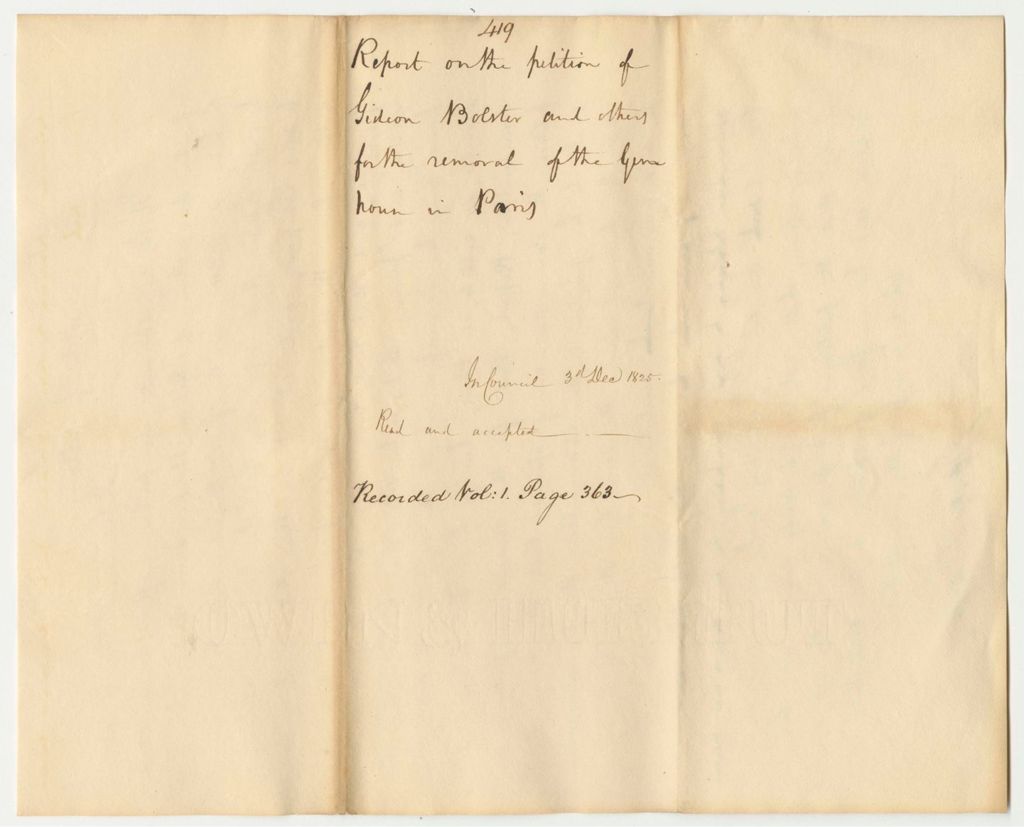 419
Report on the petition of
Gideon Bolster and others
for the removal of the Gun
house in Paris
In Council 3d Dec 1825.
Read and accepted
Recorded Vol: 1. Page 363